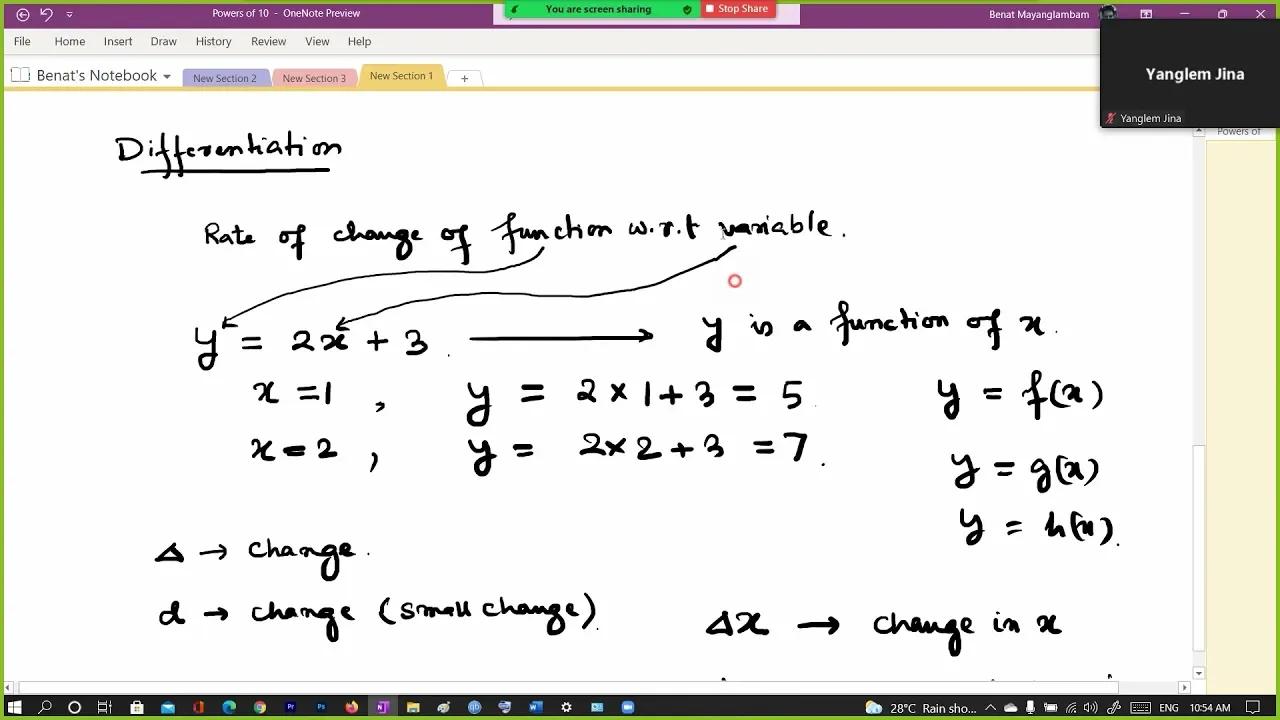 Powers of 10 - OneNote Preview
You are screen sharing
Stop Share
Benat Mayanglambam
File Home Insert Draw History Review View Help
Benat's Notebook New Section 2 New Section 3 New Section 1 +
Yanglem Jina
Yanglem Jina
Powers of
Differentiation
Rate of change of function w.r.t variable.
y = 2x + 3 → y is a function of x.
x = 1, y = 2 × 1 + 3 = 5 y = f(x)
x = 2, y = 2 × 2 + 3 = 7. y = g(x)
y = h(x).
Δ → change.
d → change (small change).
Δx → change in x
28°C Rain sho... ENG 10:54 AM